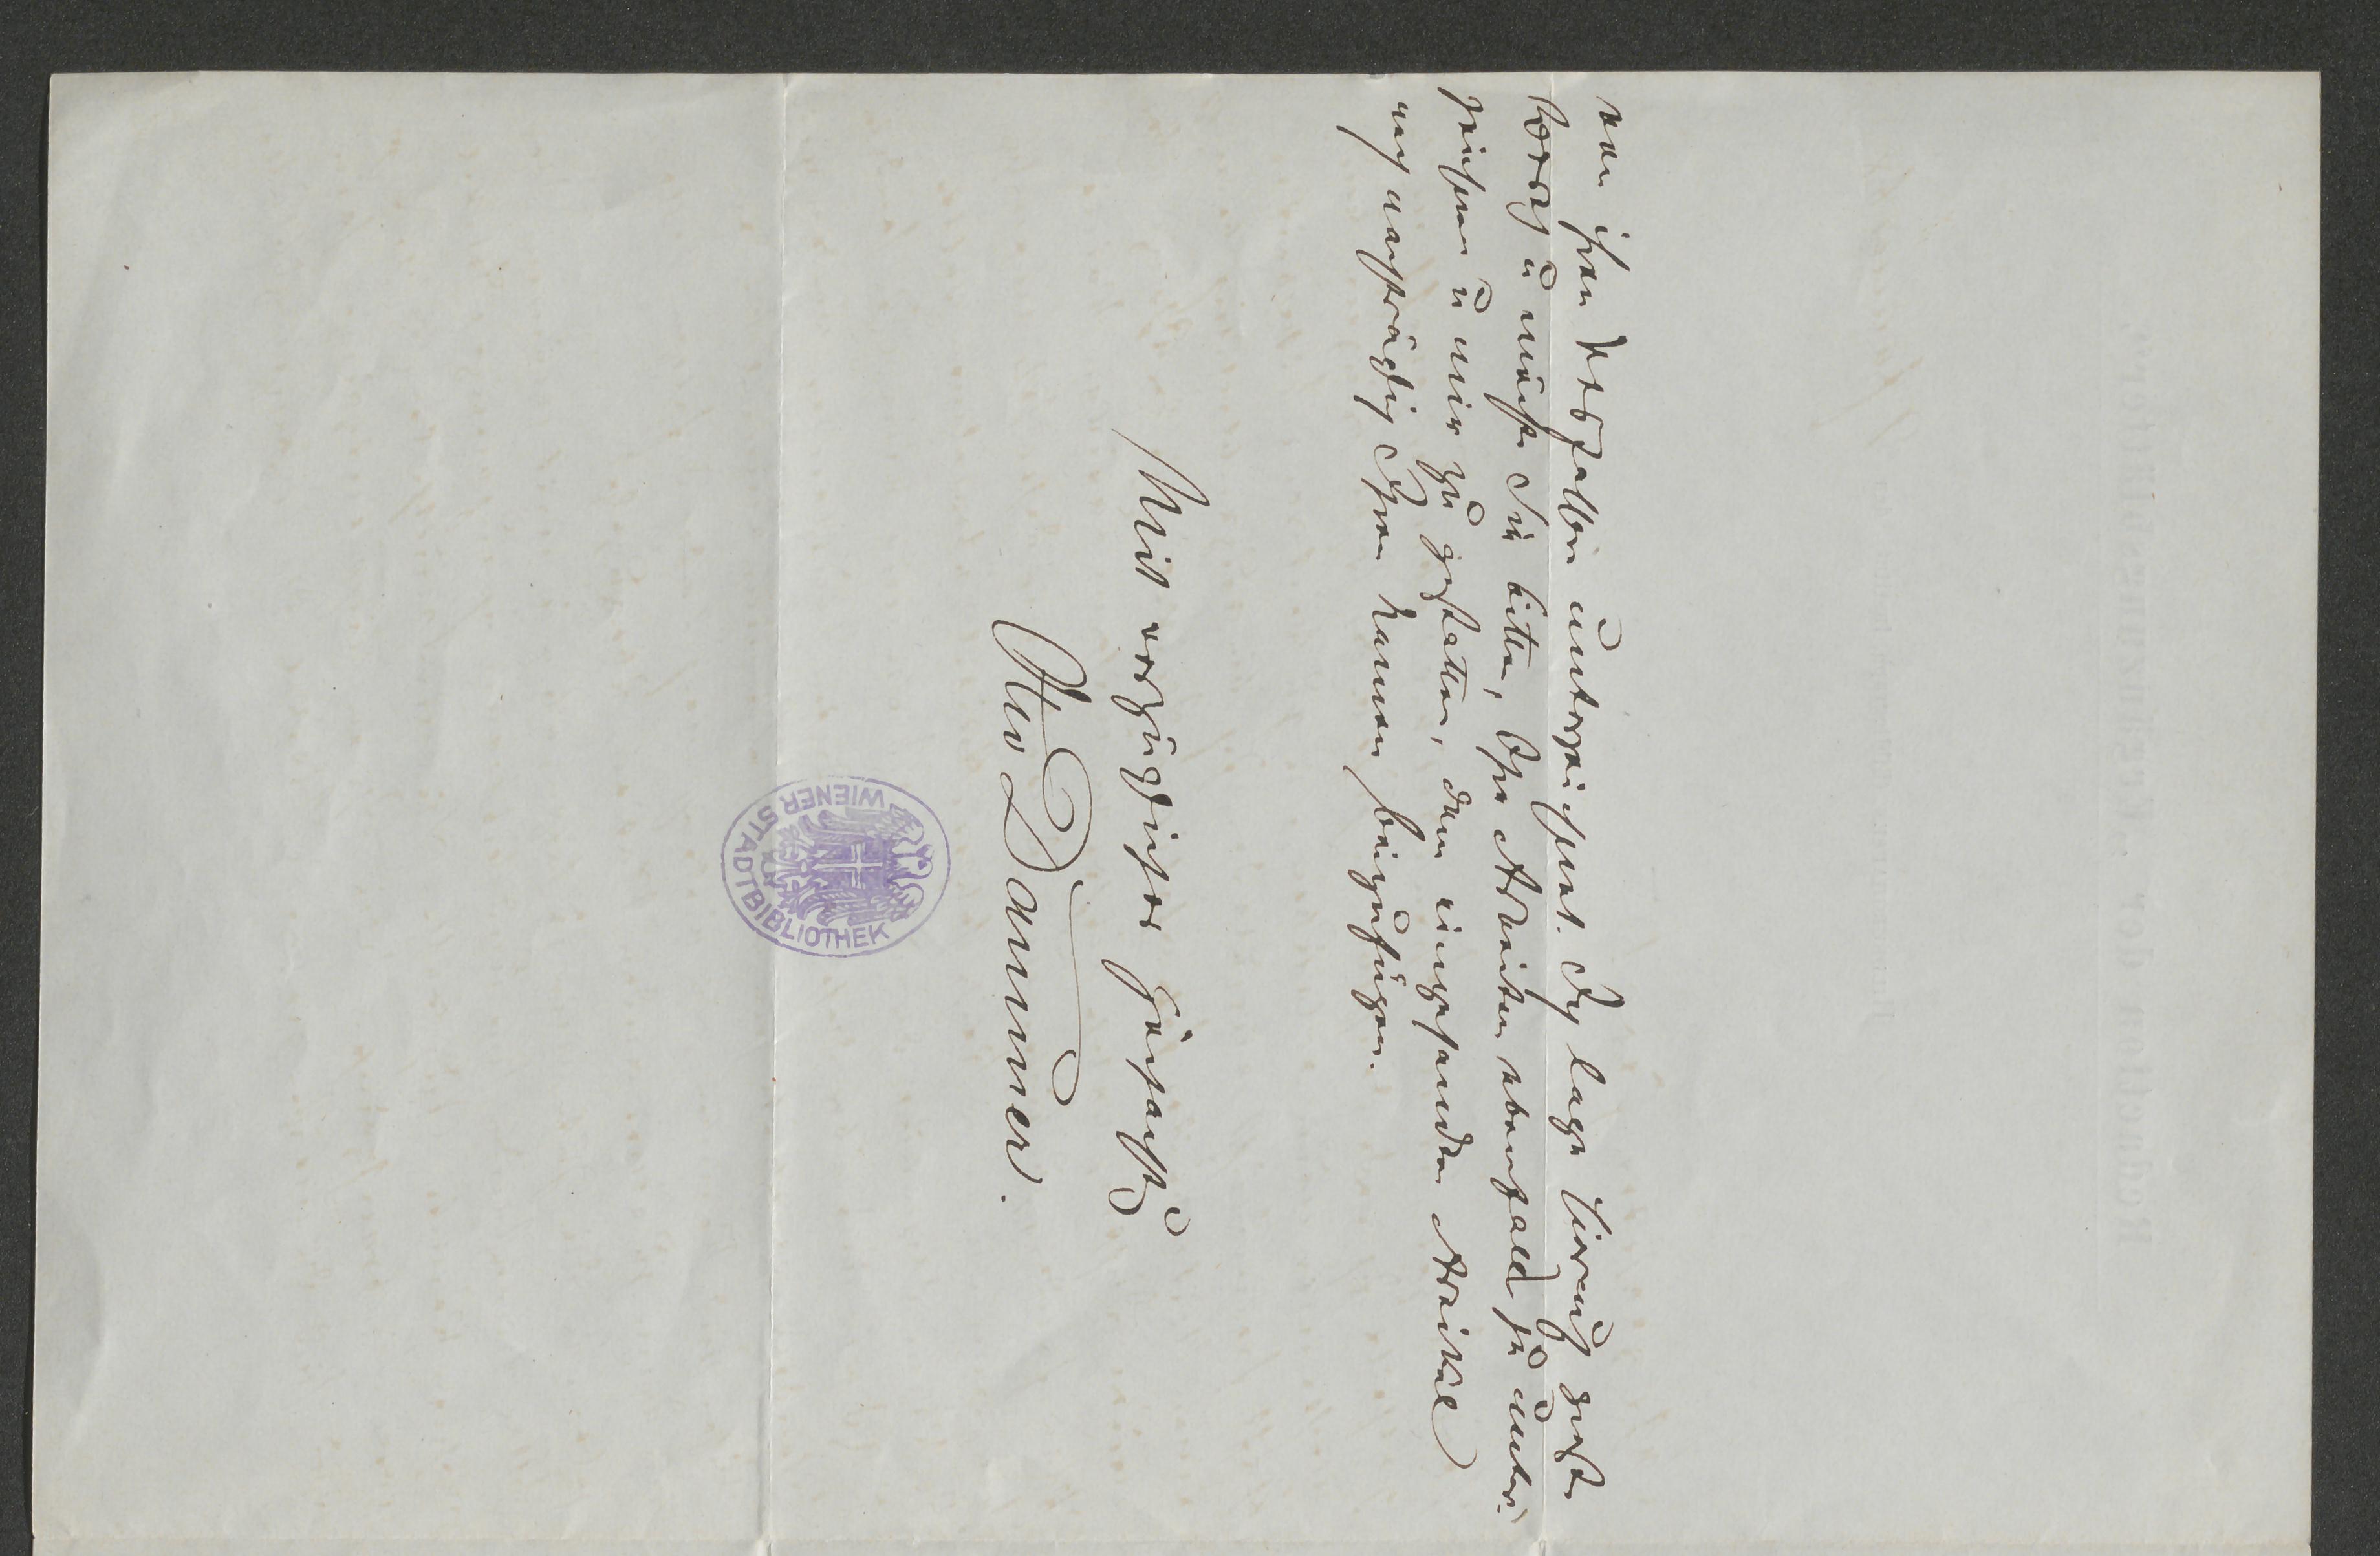 von ihren Verfassern unterzeichnet. Ich lege hierauf großen
Werth u möchte Sie bitten, Ihre Arbeiten ebenfalls zu unter-
zeichnen u mir zu gestatten, dem eingesandten Artikel
noch nachträglich Ihren Namen beizufügen.
Mit vorzüglicher Hochacht
Otto Dammer.
WIENER STADTBIBLIOTHEK